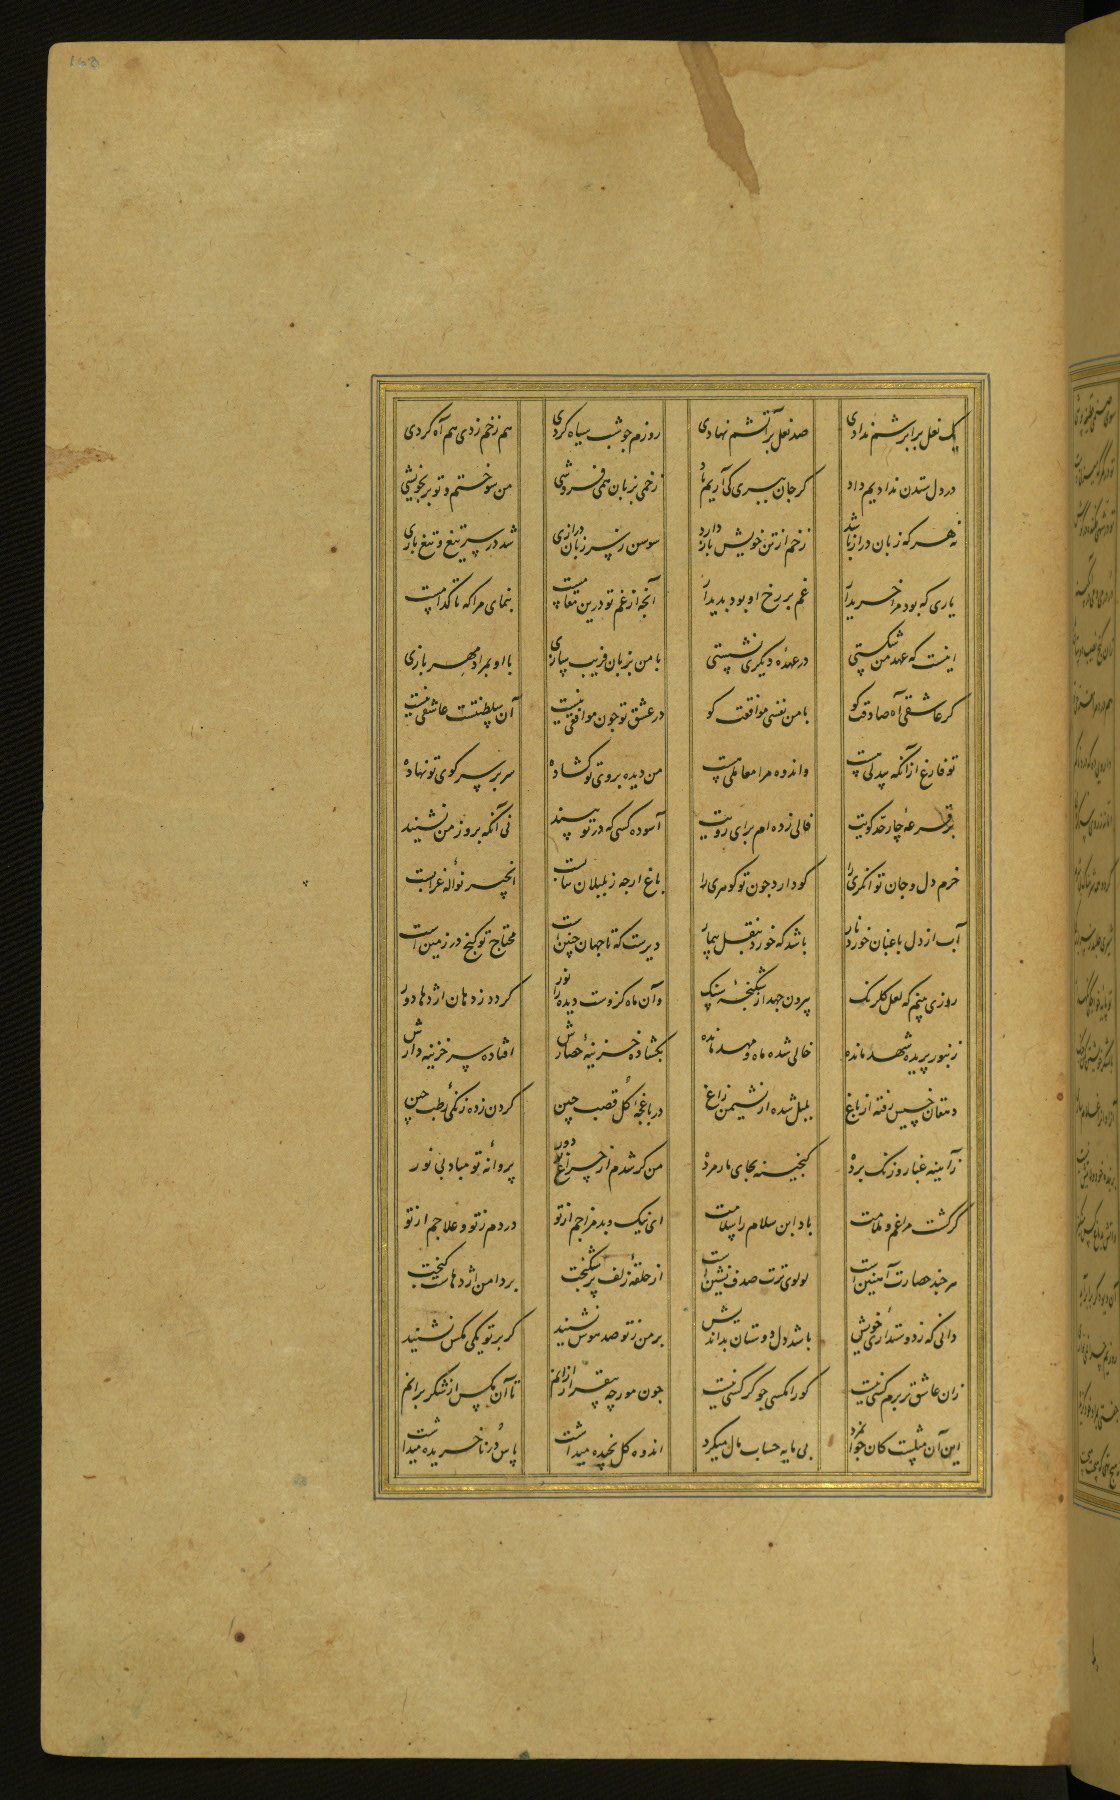 یک نعل بر ابرشم ندادی صد نعل بر آتشم نهادی روزم چو شب سیاه کردی هم زخم زدی هم آه کردی
در دل ستدن ندادیم داد گر جان ببری کی آریم یاد زخمی بزبان همی فروشی من سوختم و تو بر نجوشی
نه هر که زبان دراز باشد زخم از تن خویش باز دارد سوسن ز سر زبان درازی شد در سر تیغ و تیغ بازی
یاری که بود مرا خریدار غم بر رخ او بود بدیدار آنچه از غم تو درین مقامست بنمای مرا که تا کدامست
اینست که عهد من شکستی در عهده دیگری نشستی با من بزبان فریب سازی با او بمراد مهر بازی
کر عاشقی آه صادقت کو با من نفسی موافقت کو در عشق تو چون موافقی نیست آن سلطنتست عاشقی نیست
تو فارغ از آنکه بیدلی هست و اندوه مرا معاملی هست من دیده بروی تو کشاده سر بر سر کوی تو نهاده
بر قرعه چار حد کویت فالی زده ام برای رویت آسوده کسی که در تو بیند نی آنکه بروز من نشیند
خرم دل و جان توانکری را کو دارد چون تو کوهری را باغ ارچه ز بلبلان پرآبست انجیر نواله غرابست
آب از دل باغبان خورد نار باشد که خورد بنقل بیمار دیرست که تا جهان چنین است محتاج تو کنج در زمین است
روزی بینم که لعل کلرنک بیرون جهد از شکنجه سنک وآن ماه کزوست دیده را نور کردد ز دهان اژدها دور
زنبور پریده شهد مانده خالی شده ماه و مهد مانده بکشاده خزینه حصارش افتاده سر خزینه دارش
دهقان خسیس رفته از باغ بلبل شده از نشیمن زاغ در باغچه کل قصب چین کردن زده زنکی رطب چین
ز آیینه غبار و زنک برده کنجینه بجای مار مرده من کر شدم از چراغ تو دور پروانه تو مباد بی نور
کر کشت مرا غم و ملامت باد ابن سلام را سلامت ای نیک و بد مزاجم از تو دردم ز تو و علاجم از تو
هر چند حصارت آهنین است لولوی ترت صدف نشین است از حلقه زلف پر شکنجت بر دامن اژدهاست کنجت
دانی که ز دوستداری خویش باشد دل دوستان بداندیش بر من ز تو صد هوس نشیند کر بر تو یکی مکس نشیند
زان عاشق تر برم کسی نیست کو را مکسی چو کرکسی نیست چون مورچه بیقرار ازانم تا آن مکس از شکر برانم
این آن مثلست کان جوانمرد بی مایه حساب مال میکرد اندوه کل نچیده میداشت پاس در ناخریده میداشت